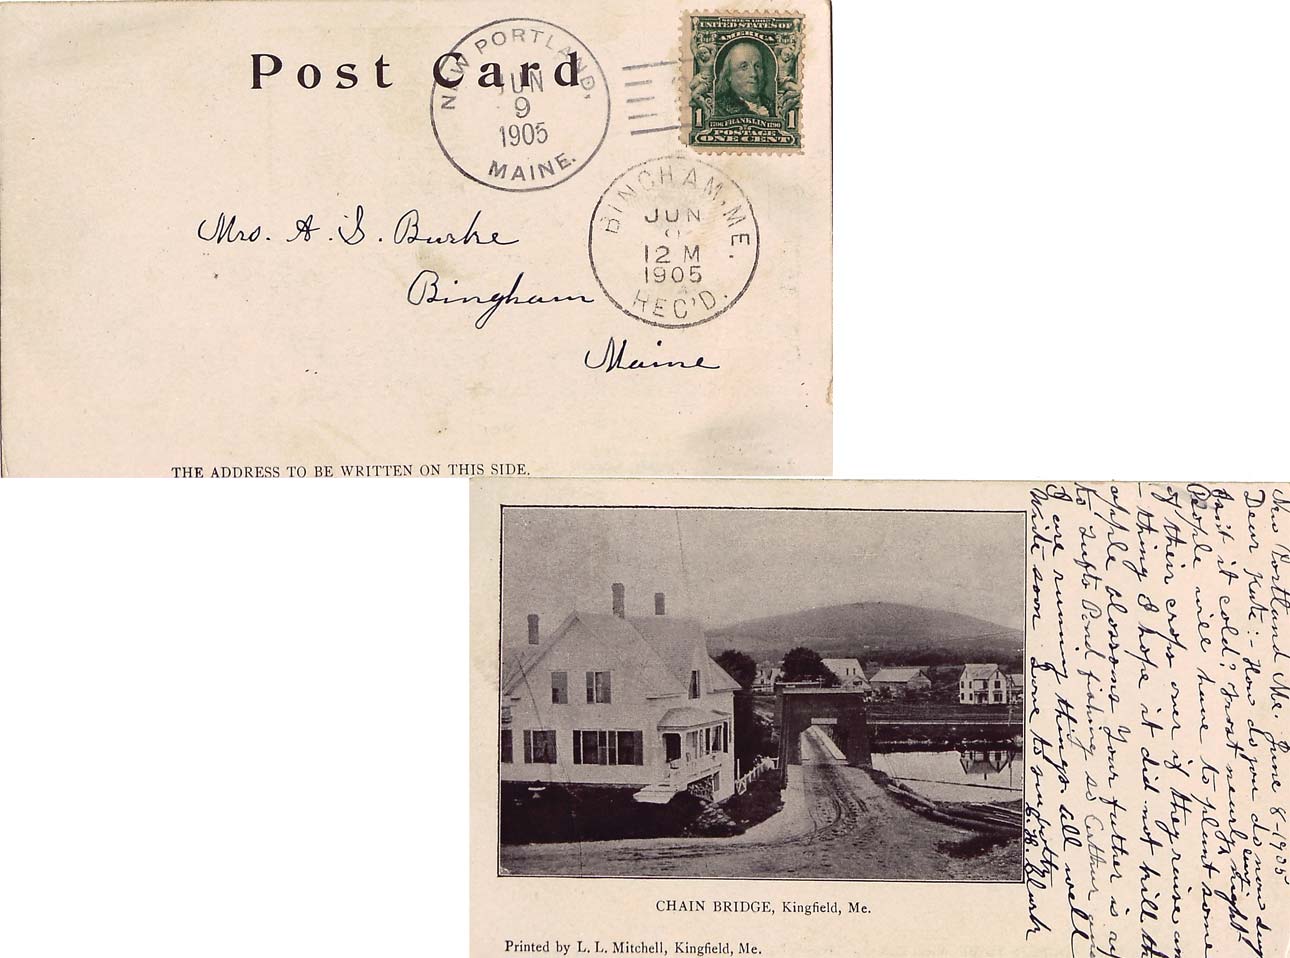 Post Card
NEW PORTLAND,
JUN
9
1905
MAINE.
SERIES 1902
UNITED STATES OF
AMERICA
1 1
1706 FRANKLIN 1790
POSTAGE
ONE CENT
BINGHAM, ME.
JUN
12 M
1905
REC'D.
Mrs. A. S. Burke
Bingham
Maine
THE ADDRESS TO BE WRITTEN ON THIS SIDE.
New Portland Me. June 8-1905
Dear Kate:- How do you do now days
Ain't it cold? Frost nearly every night
People will have to plant some
of their crops over if they raise any
-thing I hope it did not kill the
apple blossoms Your father is
to Pond fishing so Arthur and
I are running things. all well
Write soon Love to
CHAIN BRIDGE, Kingfield, Me.
Printed by L. L. Mitchell, Kingfield, Me.